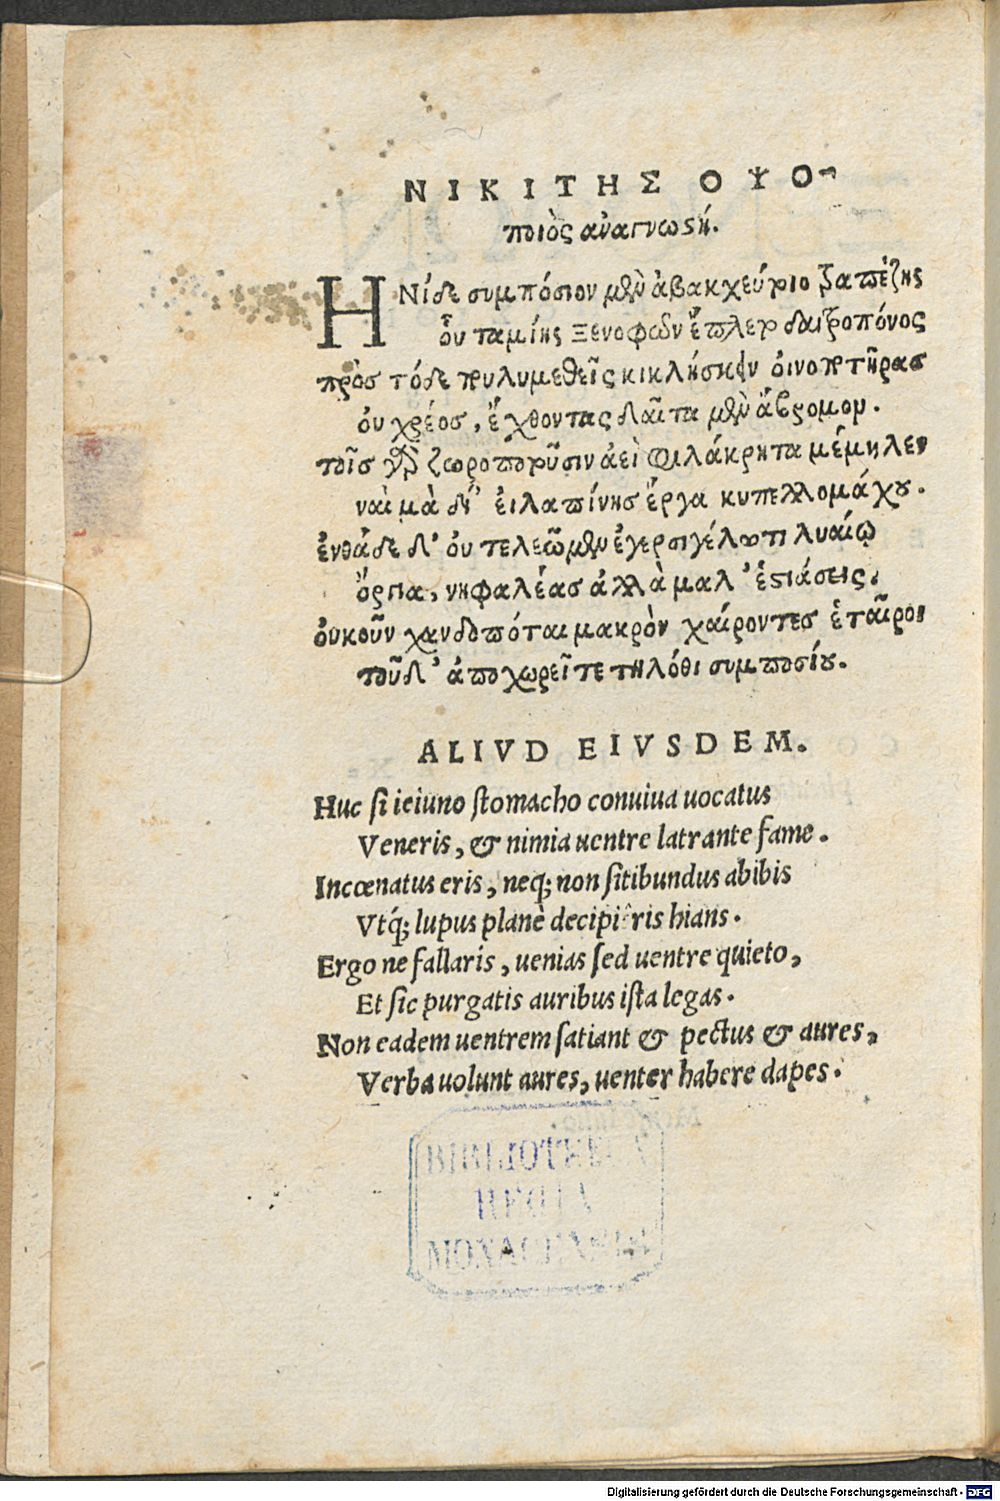 ΝΙΚΙΤΗΣ ΟΨΟ-
ποιὸς ἀναγνωστῇ.
ΗΝίδε συμπόσιον μὲν ἀβακχεύτοιο τραπέζης
οὗ ταμίης Ξενοφῶν ἔπλετο δαιτροπόνος
πρὸσ τόδε κικλήσκειν οἰνοποτῆρασ
οὐ χρέος, ἔχθοντας δαῖτα μὲν ἄβρομον.
τοῖσ γὰρ ζωροποτοῦσιν ἀεὶ φιλάκρητα μέμηλεν
ναὶ μὰ δί' εἰλαπίνης ἔργα κυπελλομάχου.
ἐνθάδε δ' οὐ τελεῶμεν ἐγερσιγέλωτι λυαίῳ
ὄργια, νηφαλέασ ἀλλὰ μαλ' ἑστιάσεις.
οὐκοῦν χανδοπόται μακρὸν χαίροντεσ ἑταῖροι
τοῦδ' ἀποχωρεῖτε τηλόθι συμποσίου.
ALIVD EIVSDEM.
Huc si ieiuno stomacho conuiua uocatus
Veneris, & nimia uentre latrante fame.
Incœnatus eris, neq; non sitibundus abibis
Vtq́; lupus planè decipieris hians.
Ergo ne fallaris, uenias sed uentre quieto,
Et sic purgatis auribus ista legas.
Non eadem uentrem satiant & pectus & aures,
Verba uolunt aures, uenter habere dapes.
BIBLIOTHECA
REGIA
MONACENSIS
Digitalisierung gefördert durch die Deutsche Forschungsgemeinschaft - DFG